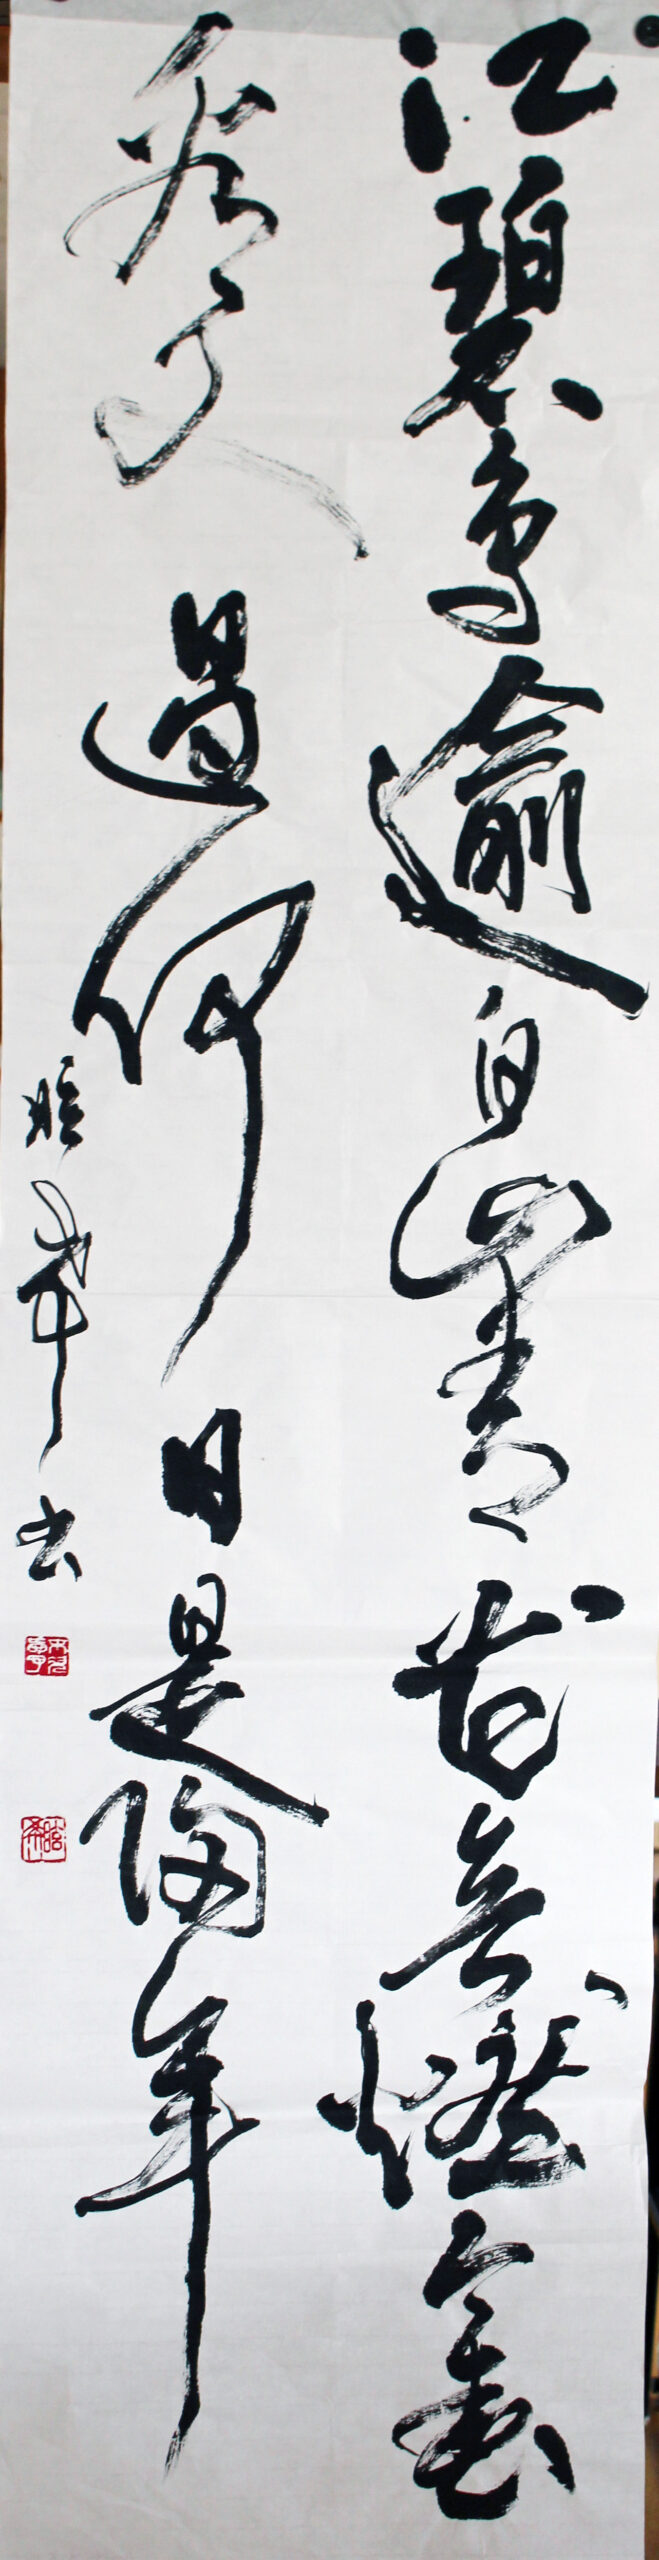 江碧鳥逾白山青花欲燃今春
看又過何日是歸年
書